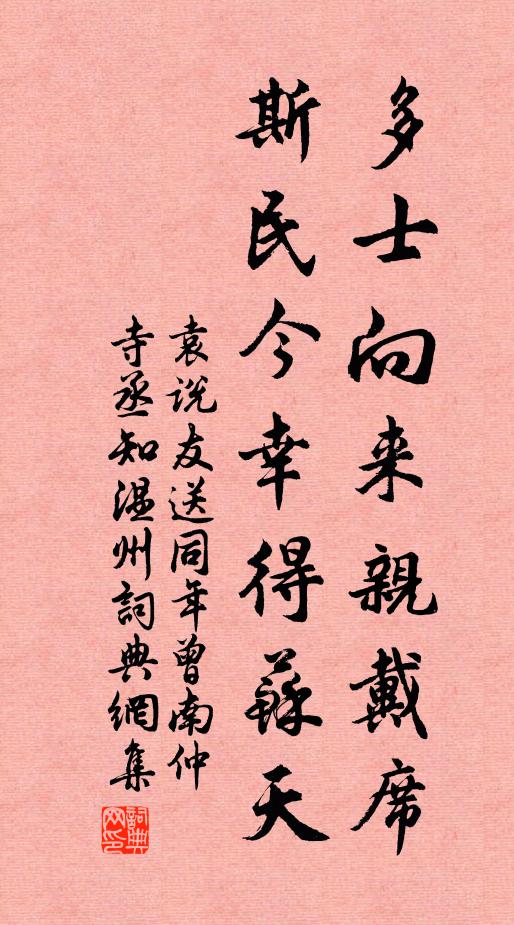 多士向来親戴席
斯民今幸得蘇天
袁説友送同年曾南仲
寺丞知温州詞典網集
詞典网印